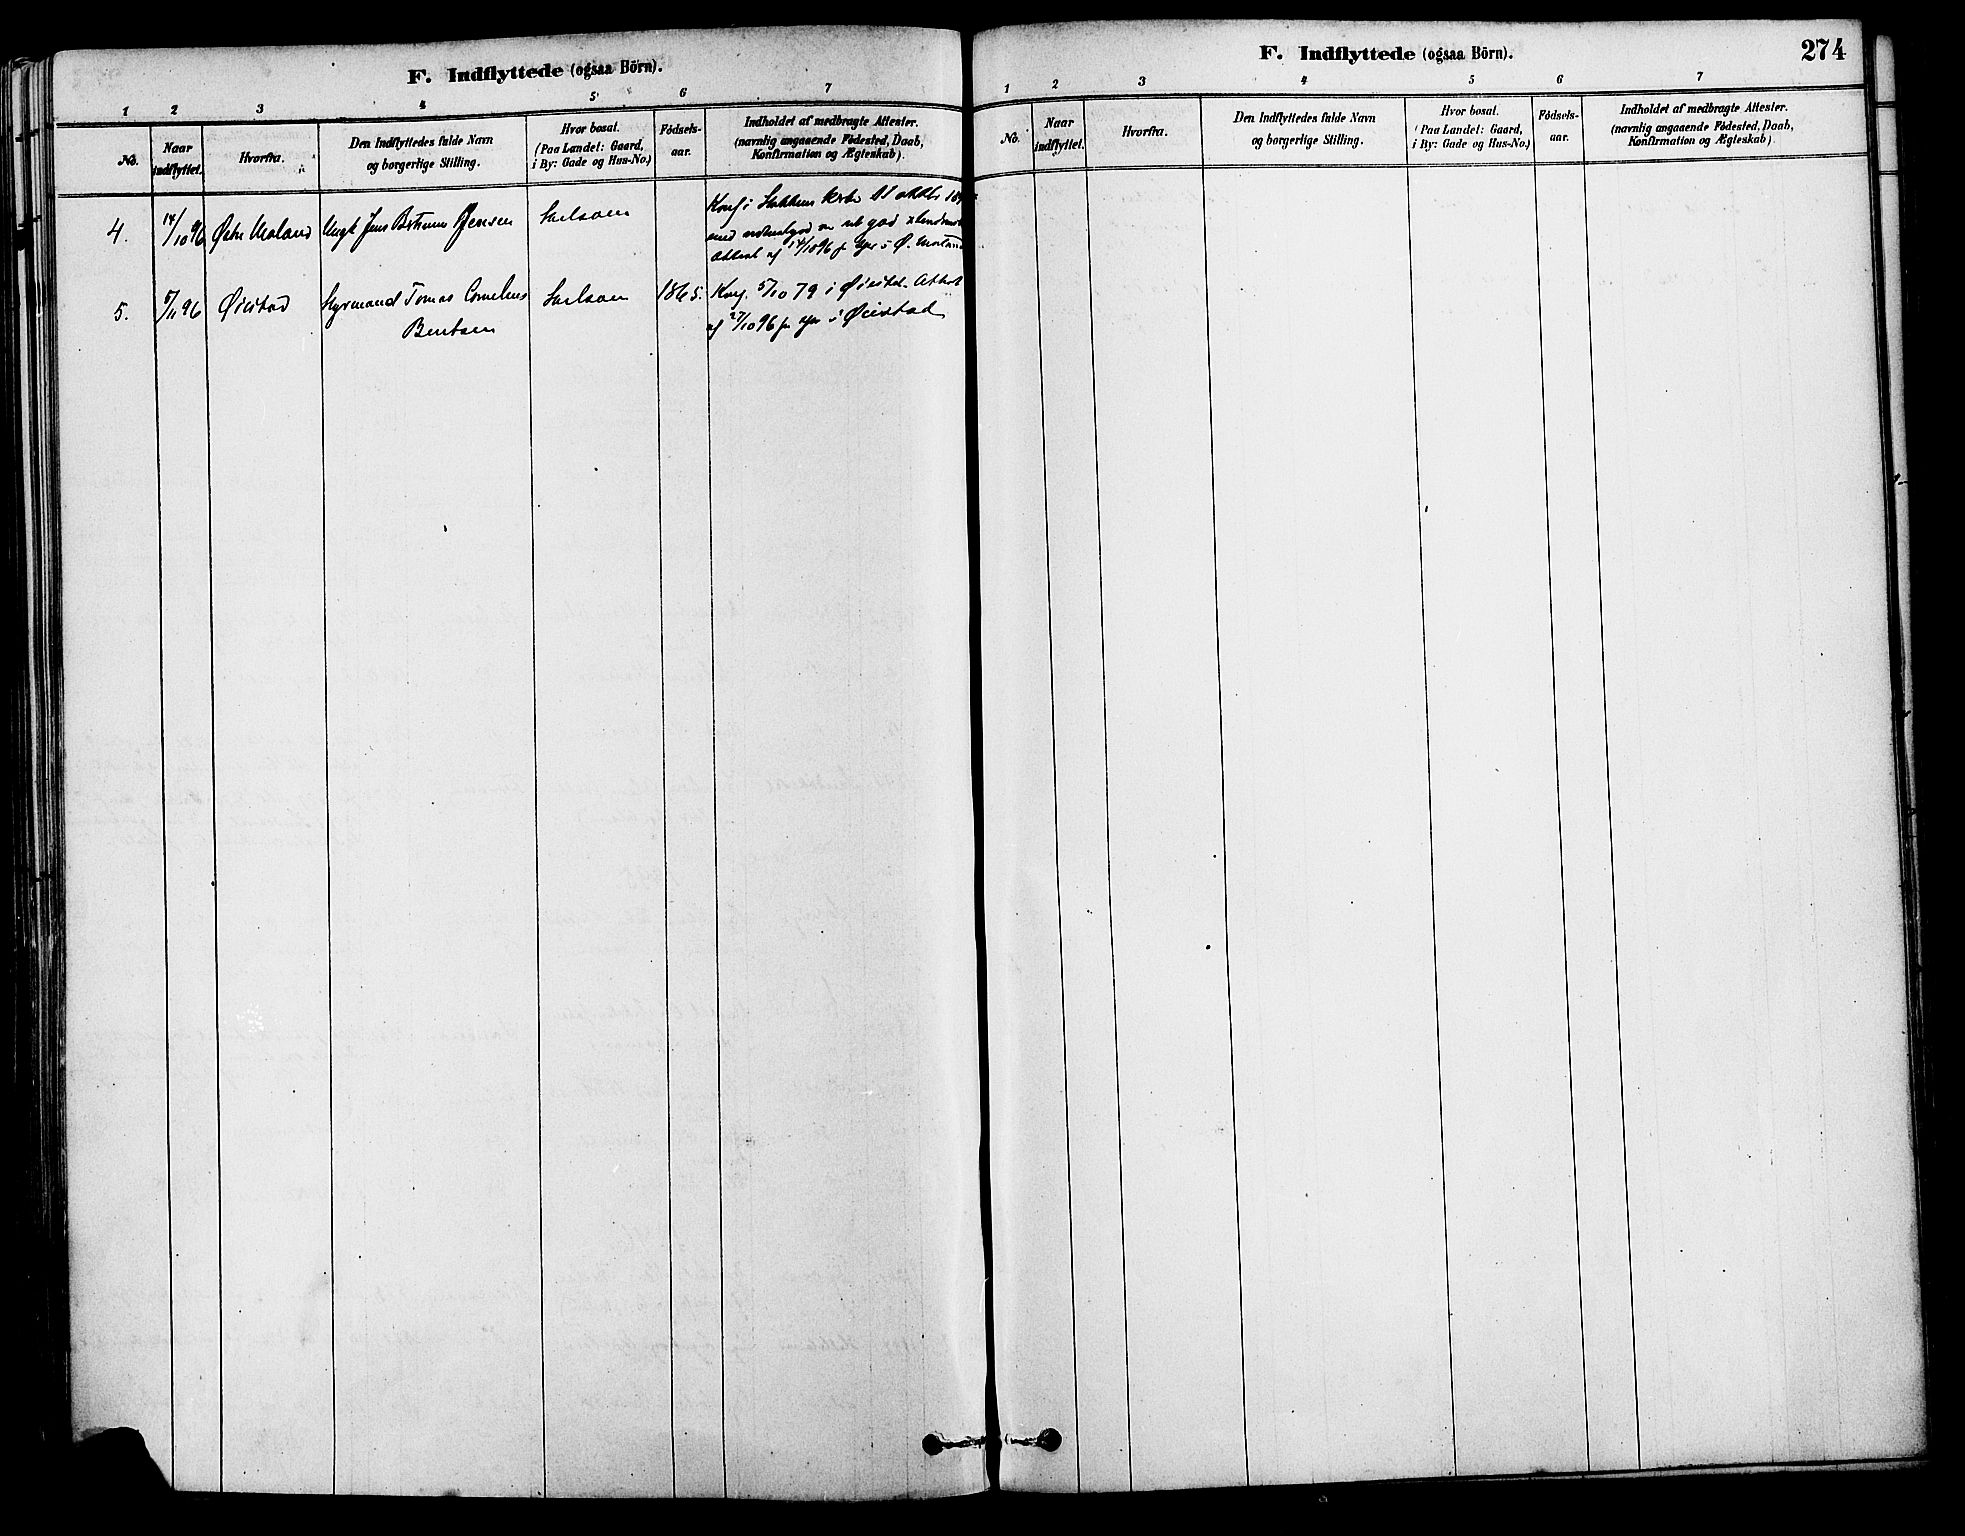 F. Indflyttede (ogsaa Börn).
1 2 3 4 5 6 7
No. Naar indflyttet. Hvorfra. Den Indflyttedes fulde Navn og borgerlige Stilling. Hvor bosat. (Paa Landet: Gaard, i By: Gade og Hus-No.) Födsels-aar. Indholdet af medbragte Attester. (navnlig angaaende Födested, Daab, Konfirmation og Ægteskab).
4. 14/10 96 Østre Moland Ungk Jens Bjensen
Konf i kirke oktbr
med god
Attest af 14/10 96 fr spr i Ø. Moland
5. 5/11 96 Øiestad Styrmand Tomas Cornelius 1865. Konf. 5/10 79 i Øiestd. Attest
Bentsen af 27/10 96 fr spr i Øiestad
F. Indflyttede (ogsaa Börn). 274
1 2 3 4 5 6 7
No. Naar indflyttet. Hvorfra. Den Indflyttedes fulde Navn og borgerlige Stilling. Hvor bosat. (Paa Landet: Gaard, i By: Gade og Hus-No.) Födsels-aar. Indholdet af medbragte Attester. (navnlig angaaende Födested, Daab, Konfirmation og Ægteskab).